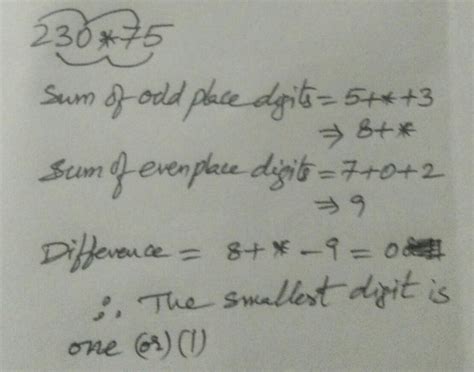 230*75
Sum of odd place digits = 5+*+3
⇒ 8+*
Sum of even place digits = 7+0+2
⇒ 9
Difference = 8+*-9 = 0
∴ The smallest digit is
one (or) (1)